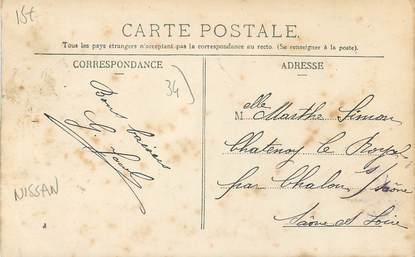 15€
CARTE POSTALE.
Tous les pays étrangers n'acceptant pas la correspondance au recto. (Se renseigner à la poste).
CORRESPONDANCE
ADRESSE
34
Bons baisers
G.
NISSAN
Melle Marthe Simon
Chatenoy le Royal
par Chalon s/Saône
Saône et Loire